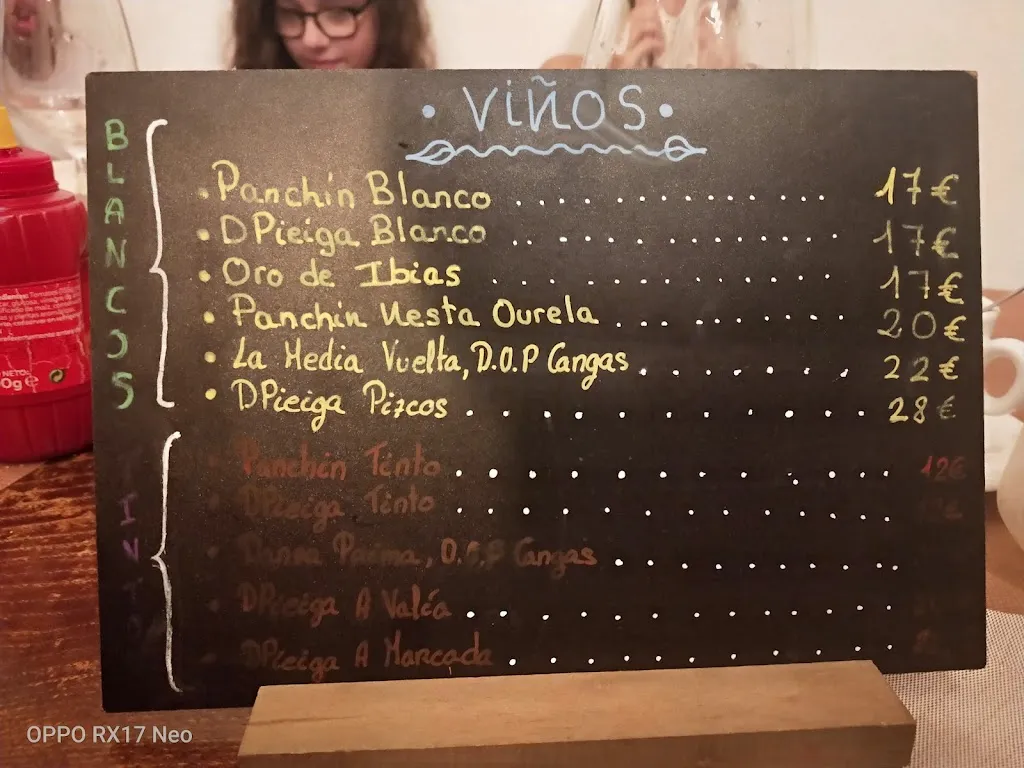 • VIÑOS •
BLANCOS
• Panchín Blanco .............. 17€
• DPieiga Blanco .............. 17€
• Oro de Ibias .............. 17€
• Panchín Nesta Ourela .............. 20€
• La Media Vuelta, D.O.P Cangas .............. 22€
• DPieiga Pizcos .............. 28€
TINTO
• Panchín Tinto .............. 12€
• DPieiga Tinto ..............
Prima, D.O.P Cangas ..............
• DPieiga A Valía ..............
• DPieiga A Marcada ..............
NETO:
0g e
OPPO RX17 Neo